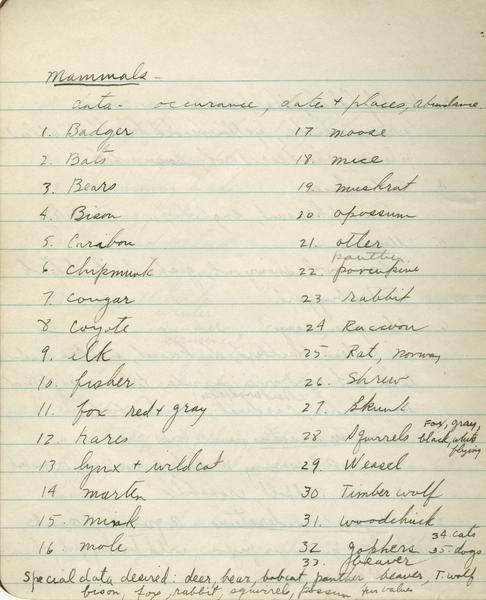 Mammals -
data - occurance, dates + places, abundance.
1. Badger
2. Bats
3. Bears
4. Bison
5. Caribou
6. Chipmunk
7. Cougar
8. Coyote
9. elk
10. fisher
11. fox red + gray
12. hares
13. lynx + wildcat
14. marten
15. mink
16. mole
17. moose
18. mice
19. muskrat
20. opossum
21. otter
panther
22. porcupine
23. rabbit
24. Raccoon
25. Rat, Norway
26. Shrew
27. Skunk
28. Squirrels Fox, gray,
black, white
flying
29. Weasel
30. Timber wolf
31. woodchuck
32. gophers 34. cats
33. beaver 35. dogs
Special data desired: deer, bear, bobcat, panther beaver, T. wolf
bison, fox, rabbit squirrels, possum fur values